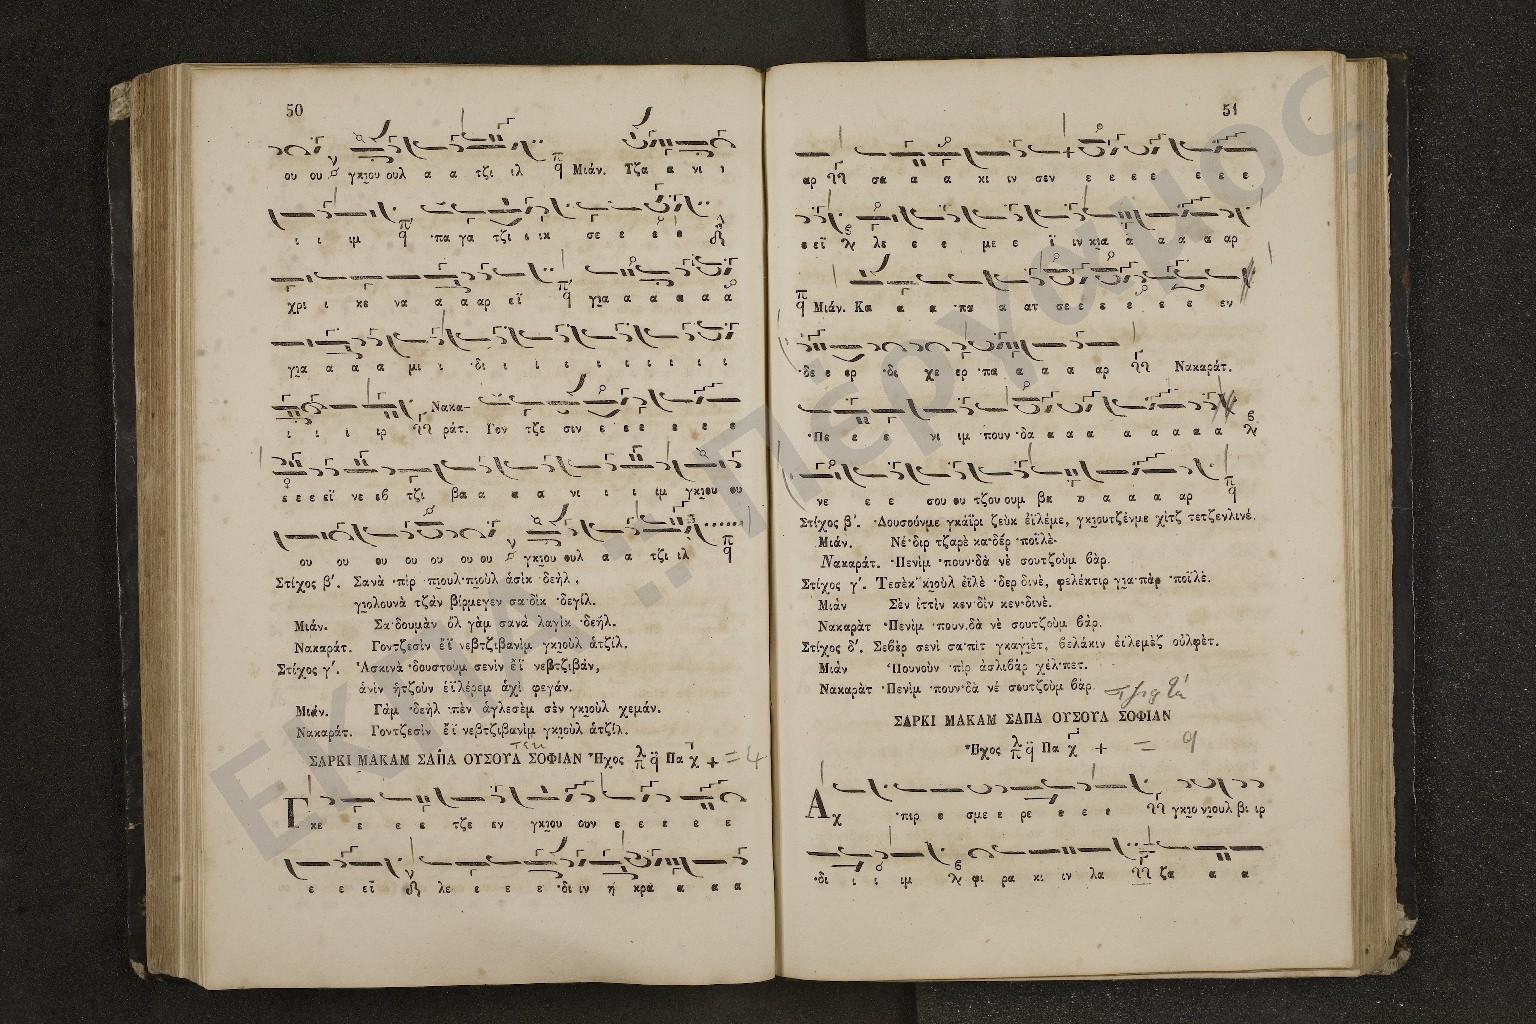 50
ου ου γκιου ουλ α α τζι ιλ Μιάν. Τζα α νι ι
ι ι ιμ ·πα γα τζι ι ικ σε ε ε ε
χρι ι κε να α α αρ εϊ για α α α α α
για α α α μι ι ·δι ι ι ι ι ι ι ι ι
ι ι ι ιρ Νακα- ράτ. Γον τζε σιν ε ε ε ε ε ε
ε ε ε εϊ νε εβ τζι βα α α α νι ι ι ιμ γκιου ου
ου ου ου ου ου ου ου γκιου ουλ α α τζι ιλ
Στίχος β΄. Σανὰ ·πὶρ ·πιουλ·πιοὺλ ἀσὶκ δεήλ,
γιολουνὰ τζὰν βίρμεγεν σα·δὶκ ·δεγίλ.
Μιάν. Σα·δουμὰν ὂλ γὰμ σανὰ λαγὶκ ·δεήλ.
Νακαράτ. Γοντζεσὶν ἒϊ νεβτζιβανὶμ γκιοὺλ ἀτζίλ.
Στίχος γ΄. Ἀσκινὰ ·δουστοὺμ σενὶν ἒϊ νεβτζιβὰν,
ἀνὶν ἠτζοὺν ἐϊλέρεμ ἀχὶ φεγάν.
Μιάν. Γὰμ ·δεὴλ ·πὲν ἀγλεσὲμ σὲν γκιοὺλ χεμάν.
Νακαράτ. Γοντζεσὶν ἒϊ νεβτζιβανὶμ γκιοὺλ ἀτζίλ.
ΣΑΡΚΙ ΜΑΚΑΜ ΣΑΠΑ ΟΥΣΟΥΛ ΣΟΦΙΑΝ Ἦχος Πα = 4
Γ κε ε ε ε τζε εν γκιου ουν ε ε ε ε ε
ε ε εϊ λε ε ε ε ε ·δι ιν ή κρα α α α
51
αρ σα α α κι ιν σεν ε ε ε ε ε ε ε
ε εϊ λε ε ε με ε ϊ ιν κια α α α α αρ
Μιάν. Κα α α ·πα α ατ σε ε ε ε ε ε ε εν
·δε ε ερ ·δι χε ερ ·πα α α α αρ Νακαράτ.
·Πε ε ε νι ιμ ·πουν ·δα α α α α α α α α
νε ε ε σου ου τζου ουμ βα α α α α αρ
Στίχος β΄. ·Δουσούνμε γκάϊρι ζεὺκ ἐϊλέμε, γκιουτζένμε χὶτζ τετζενλινέ.
Μιάν. Νέ·διρ τζαρὲ κα·δέρ ·ποϊλέ·
Νακαράτ. ·Πενὶμ ·πουν·δὰ νὲ σουτζοὺμ βάρ.
Στίχος γ΄. Τεσὲκ κιοὺλ ἐϊλὲ ·δερ δινὲ, φελέκτιρ για·πὰρ ·ποϊλέ.
Μιάν Σὲν ἰττὶν κεν·δὶν κεν·δινὲ.
Νακαρὰτ ·Πενὶμ ·πουν.δὰ νὲ σουτζοὺμ βάρ.
Στίχος δ΄. Σεβὲρ σενὶ σα·πὶτ γκαγιὲτ, βελάκιν ἐϊλεμὲζ οὐλφέτ.
Μιάν ·Πουνοὺν ·πὶρ ἀσλιβὰρ χέλ·πετ.
Νακαρὰτ ·Πενὶμ ·πουν·δὰ νέ σουτζοὺμ βάρ.
ΣΑΡΚΙ ΜΑΚΑΜ ΣΑΠΑ ΟΥΣΟΥΛ ΣΟΦΙΑΝ
Ἦχος Πα = 9
Α χ ·πιρ ε σμε ε ρε ε ε ε γκιο νιουλ βι ιρ
·δι ι ι ιμ φι ρα κι ιν λα ζα α α